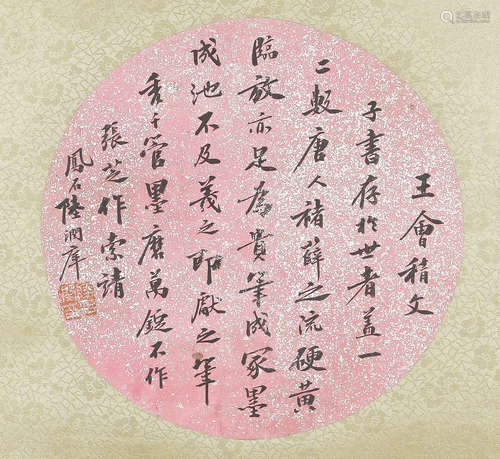 王會稽文
子書存扵世者蓋一
二數唐人褚薛之流硬黃
臨放亦足為貴筆成冢墨
成池不及羲之即獻之筆
秃千管墨磨萬錠不作
張芝作索靖
鳳石陸潤庠